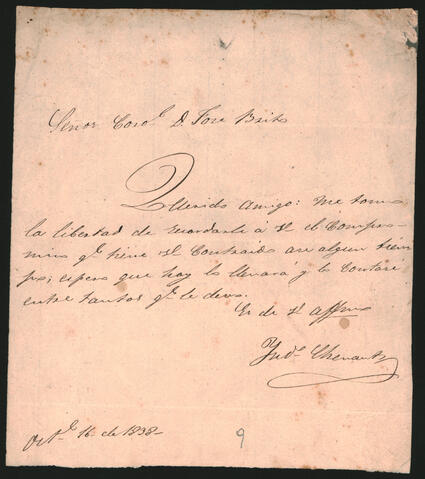 Señor Coro.l D. Jose Brito
Querido Amigo: me tomo
la libertad de recordarle á V. el Compro-
miso q.e tiene V. Contraido ase algun tiem-
po; espero que hoy lo llenará y lo Contaré
entre tantos q.e le devo.
Es de V. affmo
Oct.e 16 de 1838-
9